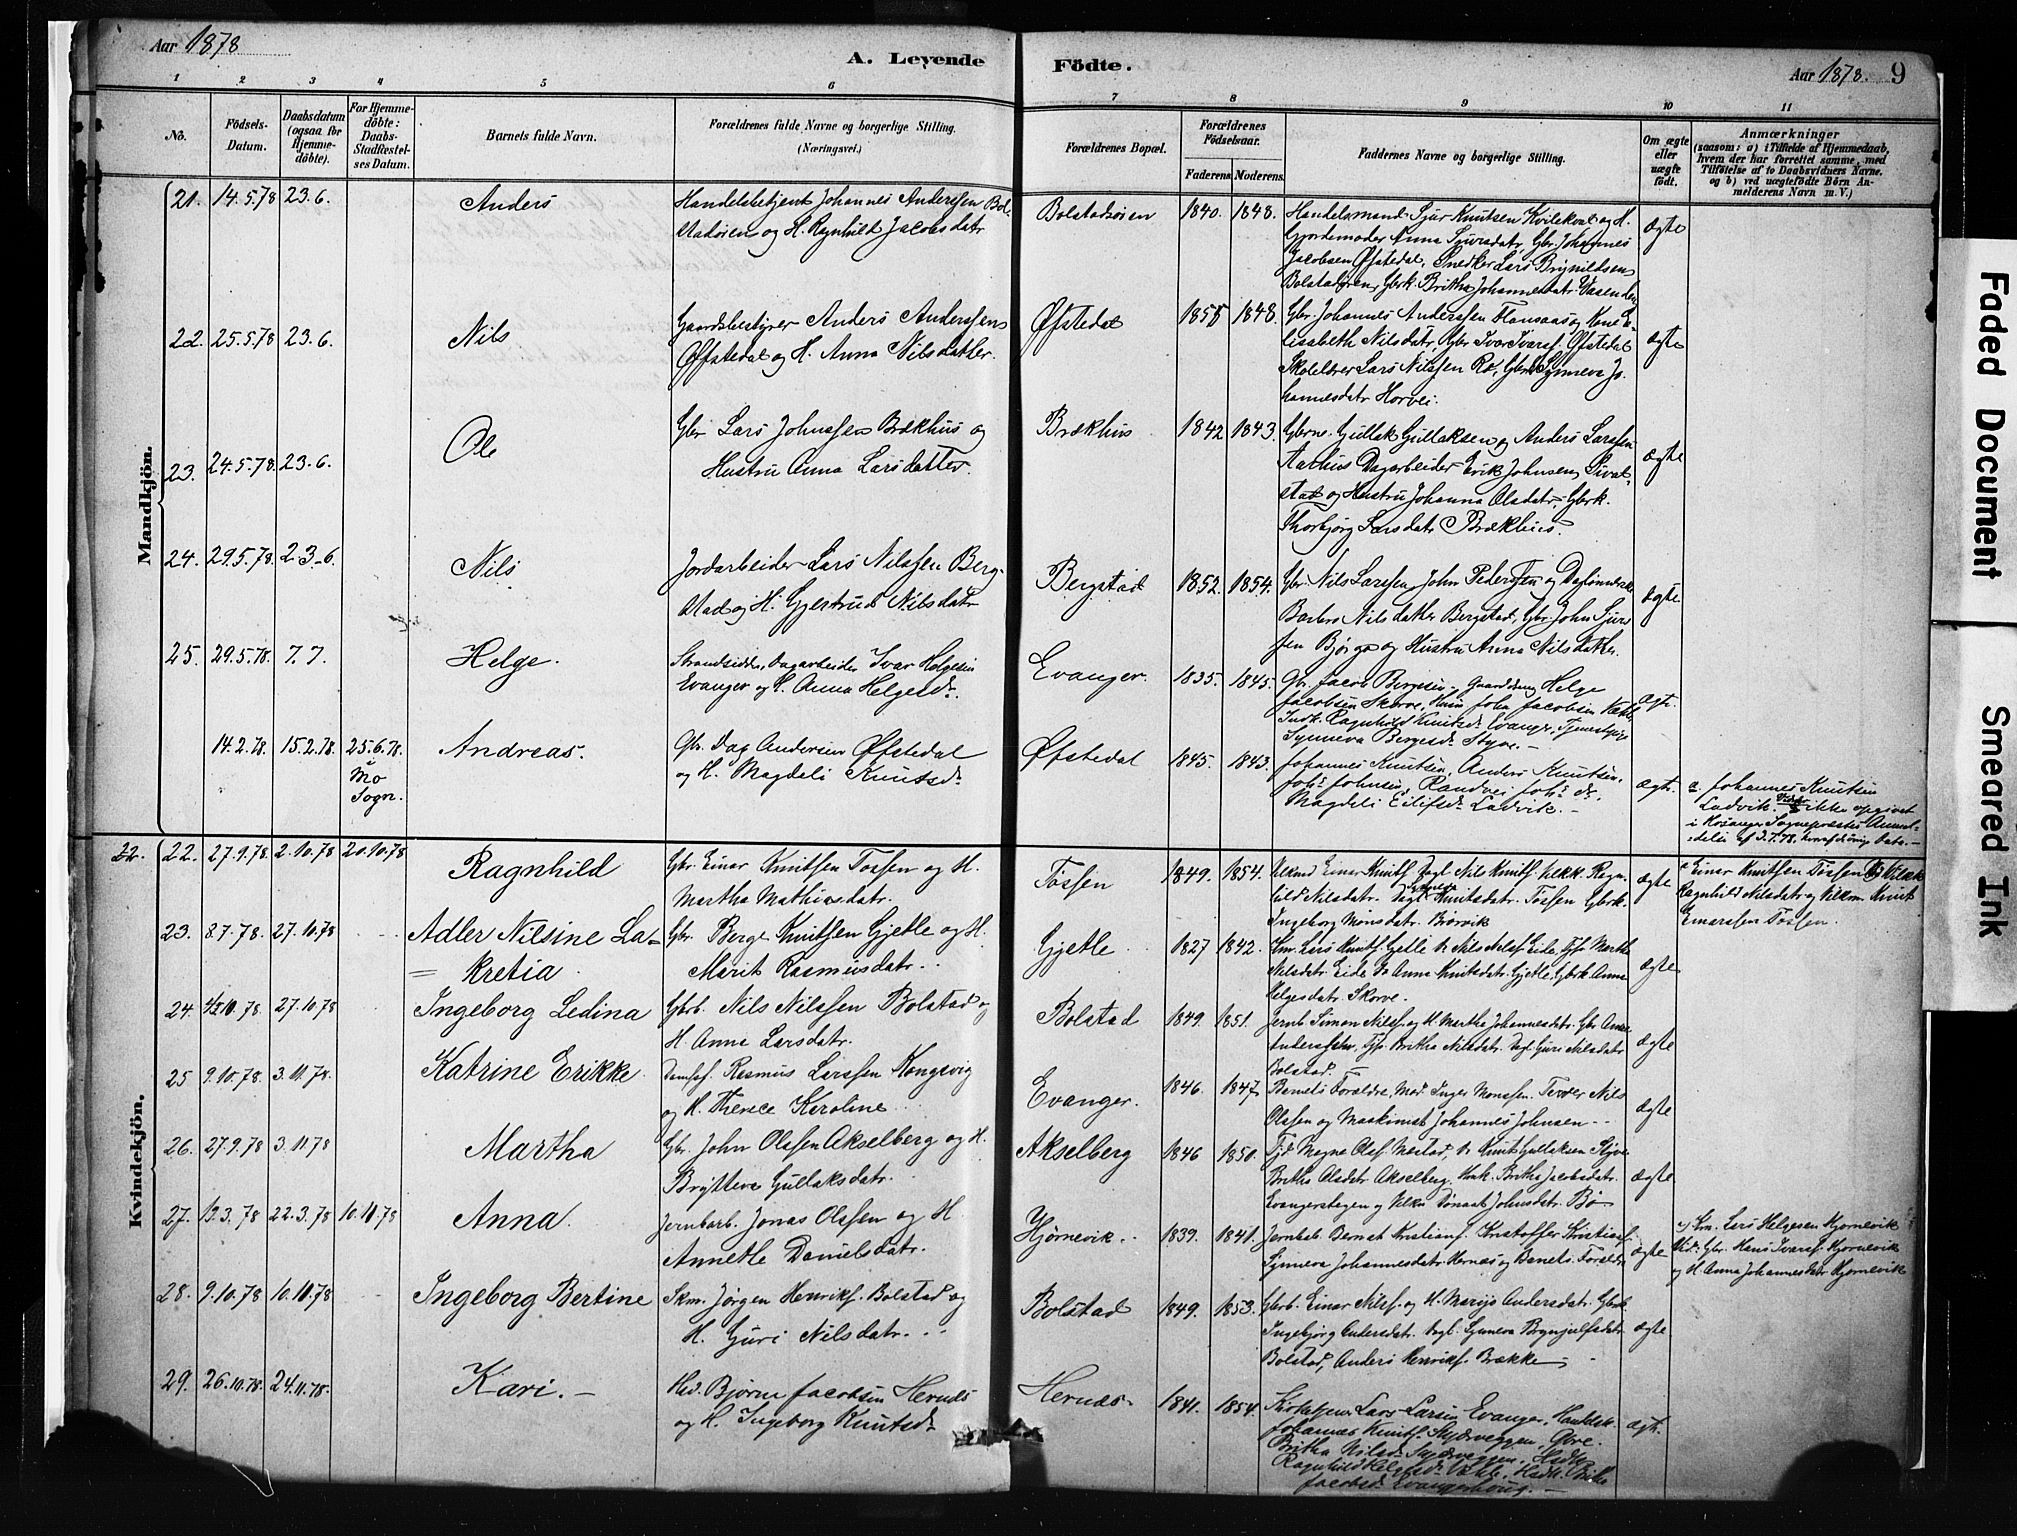 Aar 1878
A. Levende
Födte.
Aar 1878.
9
1 2 3 4 5 6 7 8 9 10 11
No.
Födsels-
Datum.
Daabsdatum
(ogsaa for
Hjemme-
döbte).
For Hjemme-
döbte:
Daabs-
Stadfæstel-
ses Datum.
Barnets fulde Navn.
Forældrenes fulde Navne og borgerlige Stilling.
(Næringsvei.)
Forældrenes Bopæl.
Forældrenes
Födselsaar.
Faderens
Moderens
Faddernes Navne og borgerlige Stilling.
Om ægte
eller
uægte
födt.
Anmærkninger
(saasom: a) i Tilfælde af Hjemmedaab,
hvem der har forrettet samme, med
Tilföielse af to Daabsvidners Navne,
og b) ved uægtefödte Börn An-
melderens Navn m. V.)
Mandkjön.
21. 14.5.78 23.6.
Anders
Handelsbetjent Johannes Anderssen Bol-
stadøren og H. Ragnhild Jacobsdatr
Bolstadøren
1840. 1848.
Handelsmand Sjur Knutsen Kvilekval og H.
Gjordemoder Anna Sjursdatr, Gbr. Johannes
Jacobsen Øfstedal, Snedker Lars Brynildsen
Bolstadøren, Gbrk. Britha Johannesdatr Vasenden
ægte
22. 25.5.78 23.6.
Nils
Gaardsbestyrer Anders Anderssen
Øfstedal og H. Anna Nilsdatter.
Øfstedal
1855 1848.
Gbr. Johannes Anderssen Flansaas og Kone E-
lisabeth Nilsdatr, Gbr Ivar Ivarss. Øfstedal
Skolelærer Lars Nilssen Ro, Gbrk Synneva Jo-
hannesdatr Horvei.
ægte
23. 24.5.78. 23.6.
Ole
Gbr Lars Johnssen Brækhus og
Hustru Anna Larsdatter.
Brækhus
1842 1843.
Gbrne. Gullak Gullaksen og Anders Larssen
Aarhus Dagarbeider Erik Johnsen Sival-
stad og Hustru Johanna Olsdatr, Gbrk.
Thorbjørg Larsdatr Brækhus.
ægte
24. 29.5.78 23.-6.
Nils
Jordarbeider Lars Nilssen Berg-
stad og H. Gjertrud Nilsdatr
Bergstad
1852. 1854.
Gbr. Nils Larssen, John Pederssen og Daglønnerske
Barbro Nilsdatter Bergstad, Gbr. John Sjurs-
sen Bjørgo og Hustru Anna Nilsdatter.
ægte
25. 29.5.78. 7.7.
Helge.
Strandsidder, Dagarbeider Ivar Helgesen
Evanger og H. Anna Helgesdr.
Evanger.
1835. 1845.
Gbr. Jacob Bergesen, Gaarddreng Helge
Jacobsen Skorve, John Jacobsen
Ragnhild Knutsdr Evanger, Tjenestepige
Synneva Bergesdr Styve.
ægte.
14.2.78. 15.2.78. 25.6.78.
i
Mo
Sogn.
Andreas.
Gbr. Dag Andersen Øfstedal
og H. Magdeli Knutsdr
Øfstedal
1845. 1843.
Johannes Knutsen, Anders Knutsen,
Johs Johnsen, Randvei Johsdr,
Magdeli Eilifsdr Ladvik. -
ægte.
a. Johannes Knutsen
Ladvik. ikke opgivet
i Hosanger Sognepræsts Anmel-
delse af 3.7.78, hvoraf øvrige Data.-
Kvindekjön.
22. 22. 27.9.78 2.10.78 20.10.78
Ragnhild
Gbr. Einar Knutsen Fossen og H.
Martha Mathiasdatr.
Fossen
1849. 1854.
Einar Knuts. Dagl Nils Knuts. Ragn-
hild Nilsdatr. Knutsdatr. Fossen Gbrk.
Ingeborg Monsdatr. Børvik
ægte
Einar Knutsen Fossen
Ragnhild Nilsdatr og Knut
Einarsen Fossen.
23. 8.7.78. 27.10.78
Adler Nilsine La-
= kretia.
Gbr. Berge Knutsen Gjetle og H.
Marit Rasmusdatr.
Gjetle
1827 1842.
Lars Knuts. Gjetle Nils Nilss. Eide Martha
Nilsdatr. Eide Anna Knutsdatr. Gjetle, Gbrk. Anna
Helgesdatr. Skorve.
ægte
24. 10.78. 27.10.78
Ingeborg Ledina
Gbrb. Nils Nilssen Bolstad og
H. Anna Larsdatr.
Bolstad
1849. 1851.
Jernb. Simon Nilss. og H. Martha Johannesdatr. Gbr
Anderssen, Britha Nilsdatr. Dagl Guri Nilsdatr
Bolstad.
ægte
25 9.10.78. 3.11.78.
Katrine Erikke.
Rasmus Larssen Kongsvig
og H. Therese Karoline
Evanger.
1846. 1847
Barnets Forældre, Inger Monssen. Nils
Olssen og Maskinist Johannes Johnsen..
ægte
26. 27.9.78 3.11.78
Martha
Gbr. John Olssen Akselberg og H.
Brytteva Gullaksdatr.
Akselberg
1846 1850.
Magne Olss. Mestad, Knut Gullaksen
Britha Olsdatr. Akselberg, Britha Jacobsdatr.
Evangerstegen og Johnsdatr. Bø
ægte
27. 19.3.78 22.3.78 10.11.78
Anna.
Jernbarb. Jonas Olssen og H
Annette Danielsdatr.
Hjørnevik.
1839. 1841.
Jernbab. Bernt Kristians. Kristoffer Kristians.
Synneva Johannesdatr. Hernæs og Barnets Forældre
ægte
Lars Helgesen Hjørnevik
Vid: Gbr. Hans Ivarss. Hjørnevik
og H. Anna Johannesdatr Hjørnevik
28. 9.10.78 10.11.78
Ingeborg Bertine
Skm. Jørgen Henriks. Bolstad og
H. Guri Nilsdatr.
Bolstad
1849. 1853.
Gbrb. Einar Nilss. og H. Marijo Andersdatr. Gbrk.
Ingebjørg Andersdatr. Dagl. Synneva Brynjulfsdatr
Bolstad, Anders Henriks. Brække
ægte
29. 26.10.78. 24.11.78.
Kari. -
Hed. Bjørne Jacobsen Hernæs
og H. Ingeborg Knutsdr
Hernæs.
1841. 1854.
Kirketjener Lars Larsen Evanger, Handelsk.
Johannes Knuts.
Britha Nilsdr
Ragnhild Helgesdr
Jacobsdr Evangerhoug. -
ægte.
Faded Document
Smeared Ink